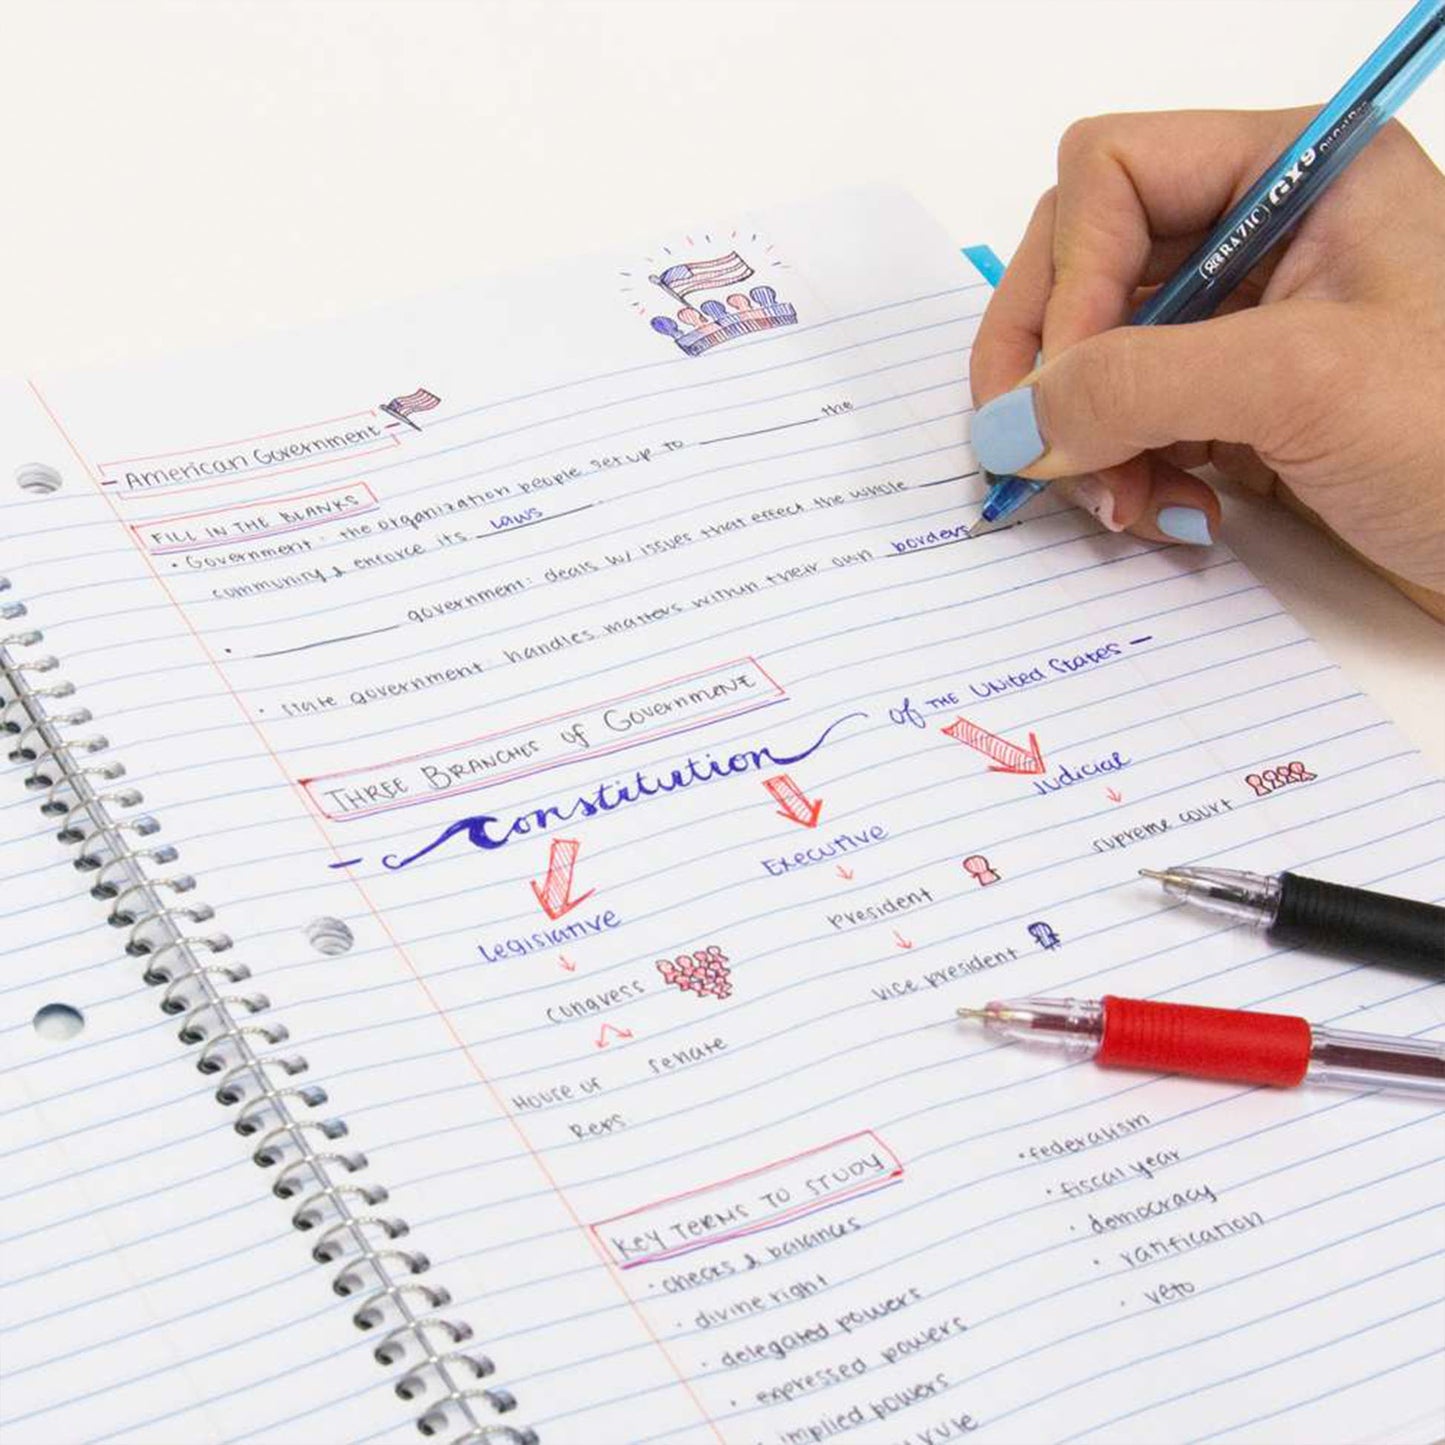 American Government
FILL IN THE BLANKS
• Government: the organization people set up to ________ the
community & enforce its laws
• ________ government: deals w/ issues that effect the whole ________
• state government: handles matters within their own borders
THREE BRANCHES of GOVERNMENT
- Constitution of THE UNITED STATES -
Legislative
Executive
Judicial
congress
president
supreme court
House of
Reps
senate
vice president
KEY TERMS TO STUDY
• checks & balances
• divine right
• delegated powers
• expressed powers
• implied powers
rule
• federalism
• fiscal year
• democracy
• ratification
• veto
RAZIC GX9 Oil Gel Pen